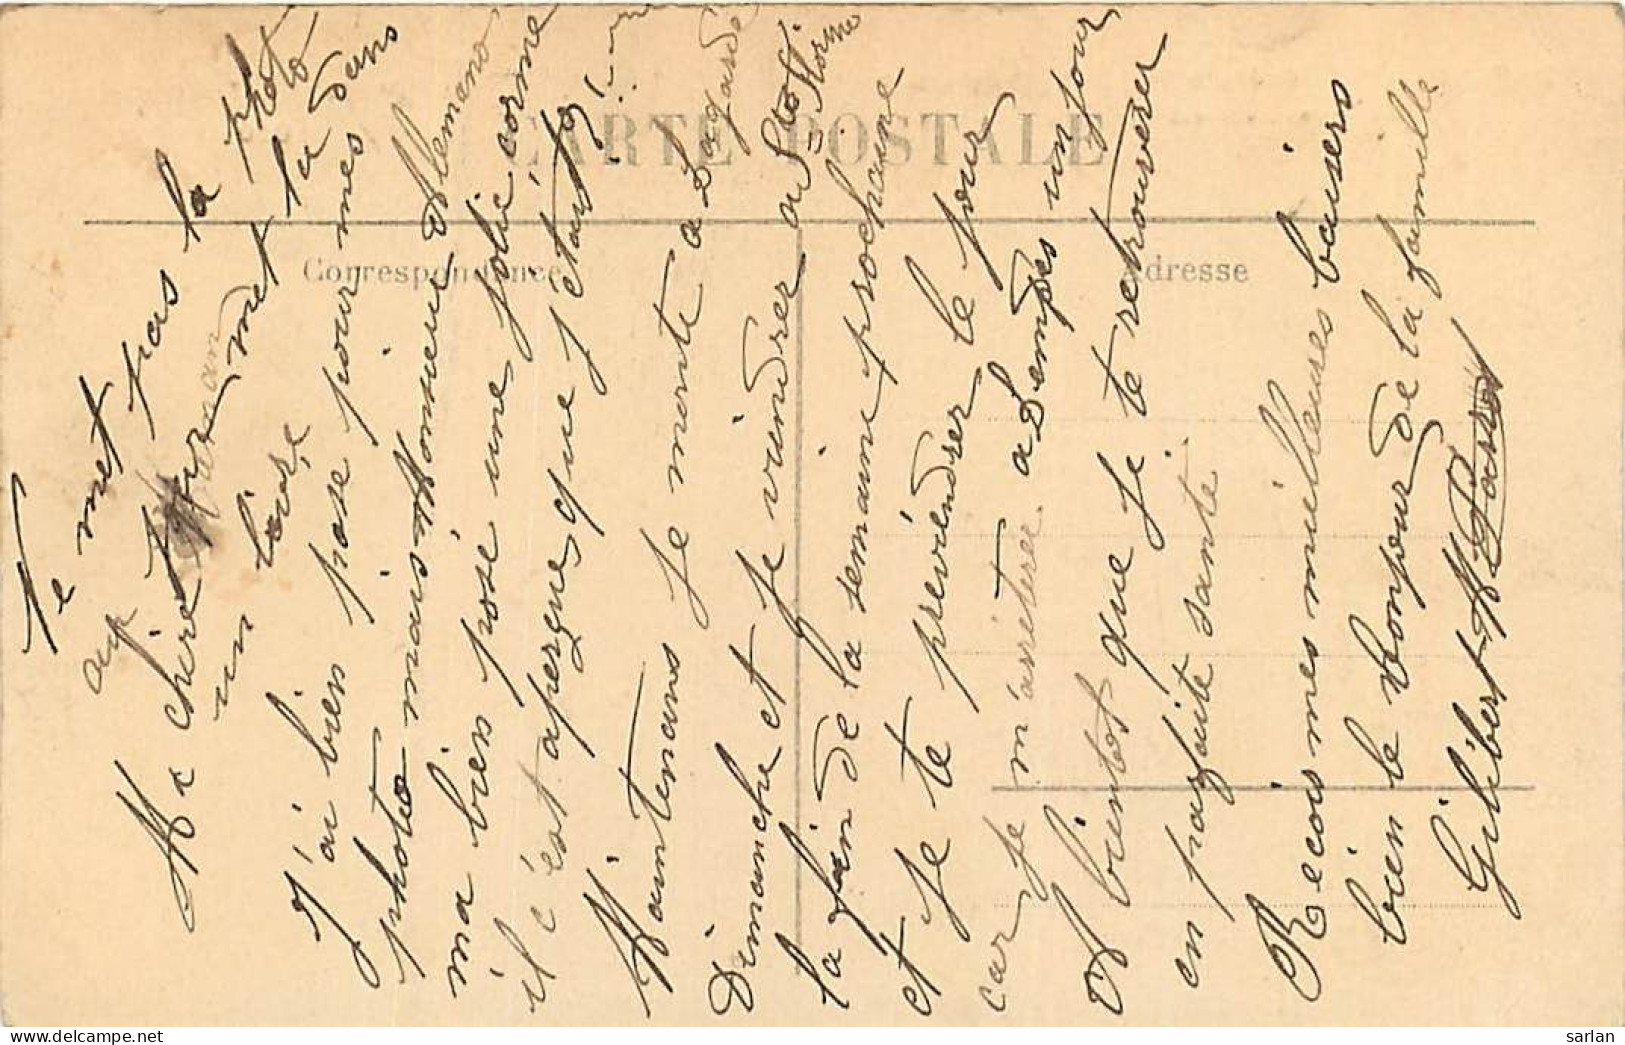 CARTE POSTALE
Correspondance
Adresse
Te met pas la photo
au
un met la dans
Ma chère
un livre
J'ai bien posé pour mes
photo mais Monsieur Alemand
ma bien posé une jolie corme
il c'est aperçue que j'étais
Maintenans je monte a Lagarde
Dimanche et je viendrer a
la fin de la semaine prochaine
et je te previendrer le jour
car je m'arrêterè a Lempdes un jour
A bientot que je te retrouverer
en parfaite santé
Recois mes meilleuses baisers
bien le bonjour de la famille
Gilbert
sarlan